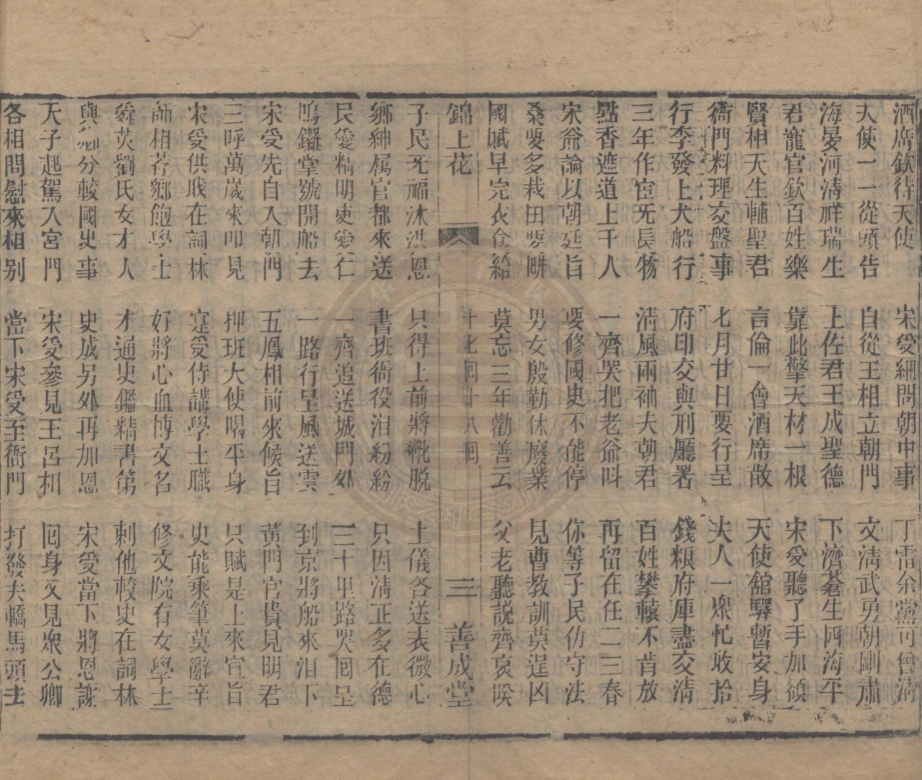 酒席欽待天使　宋爱細問朝中事　丁雷余黨可曾清
天使一一從頭告　自從王相立朝門　文清武勇朝剛肅
海晏河清祥瑞生　上佐君王成聖德　下濟蒼生四海平
君寵官欽百姓樂　靠此擎天材一根　宋爱聽了手加額
賢相天生輔聖君　言倫一會酒席散　天使舘驛暫安身
衙門料理交盤事　七月廿日要行呈　夫人一衆忙收拾
行李發上大船行　府印交與刑廳署　錢粮府庫盡交清
三年作官无長物　清風兩袖大朝君　百姓攀轅不肯放
點香遮道上千人　一齊哭把老爺呌　再留在任二三春
宋爺諭以朝廷旨　要修國史不能停　你等子民仿守法
桑要多栽田要畊　男女殷勤休廢業　見曹教訓莫逞凶
國賦早完衣食給　莫忘三年勸善云　父老聽説齊哀哭
錦上花　十七囘十八囘　三　善成堂
子民无福沐洪恩　只得上前將靴脱　上儀各送表微心
鄉紳属官都來送　書班衙役泪紛紛　只因清正多在德
民愛精明吏愛仁　一齊追送城門外　三十里路哭囘呈
鳴鑼掌號開船去　一路行呈風送雲　到京將船來泊下
宋爱先自入朝門　五鳳相前來候旨　黄門官貴見明君
三呼萬歲來叩見　押班大使喝平身　只賦是上來宣旨
宋爱供戝在詞林　寔受侍讀學士職　史能乘筆莫辭辛
師相荐鄉飽學士　好將心血博文名　修文院有女學士
舜英劉氏女才人　才通史鑑精書第　刺他較史在詞林
與卿分較國史事　史成另外再加恩　宋爱當下將恩謝
天子起駕入宮門　宋爱參見王呂相　囘身又見衆公卿
各相問慰來相别　當下宋爱至衙門　打發夫轎馬頭去